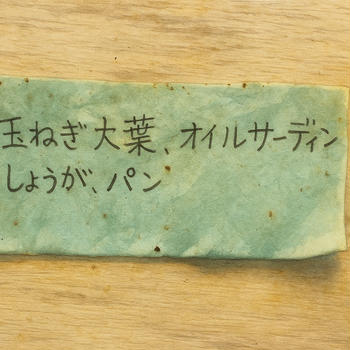 玉ねぎ大葉、オイルサーディン
しょうが、パン